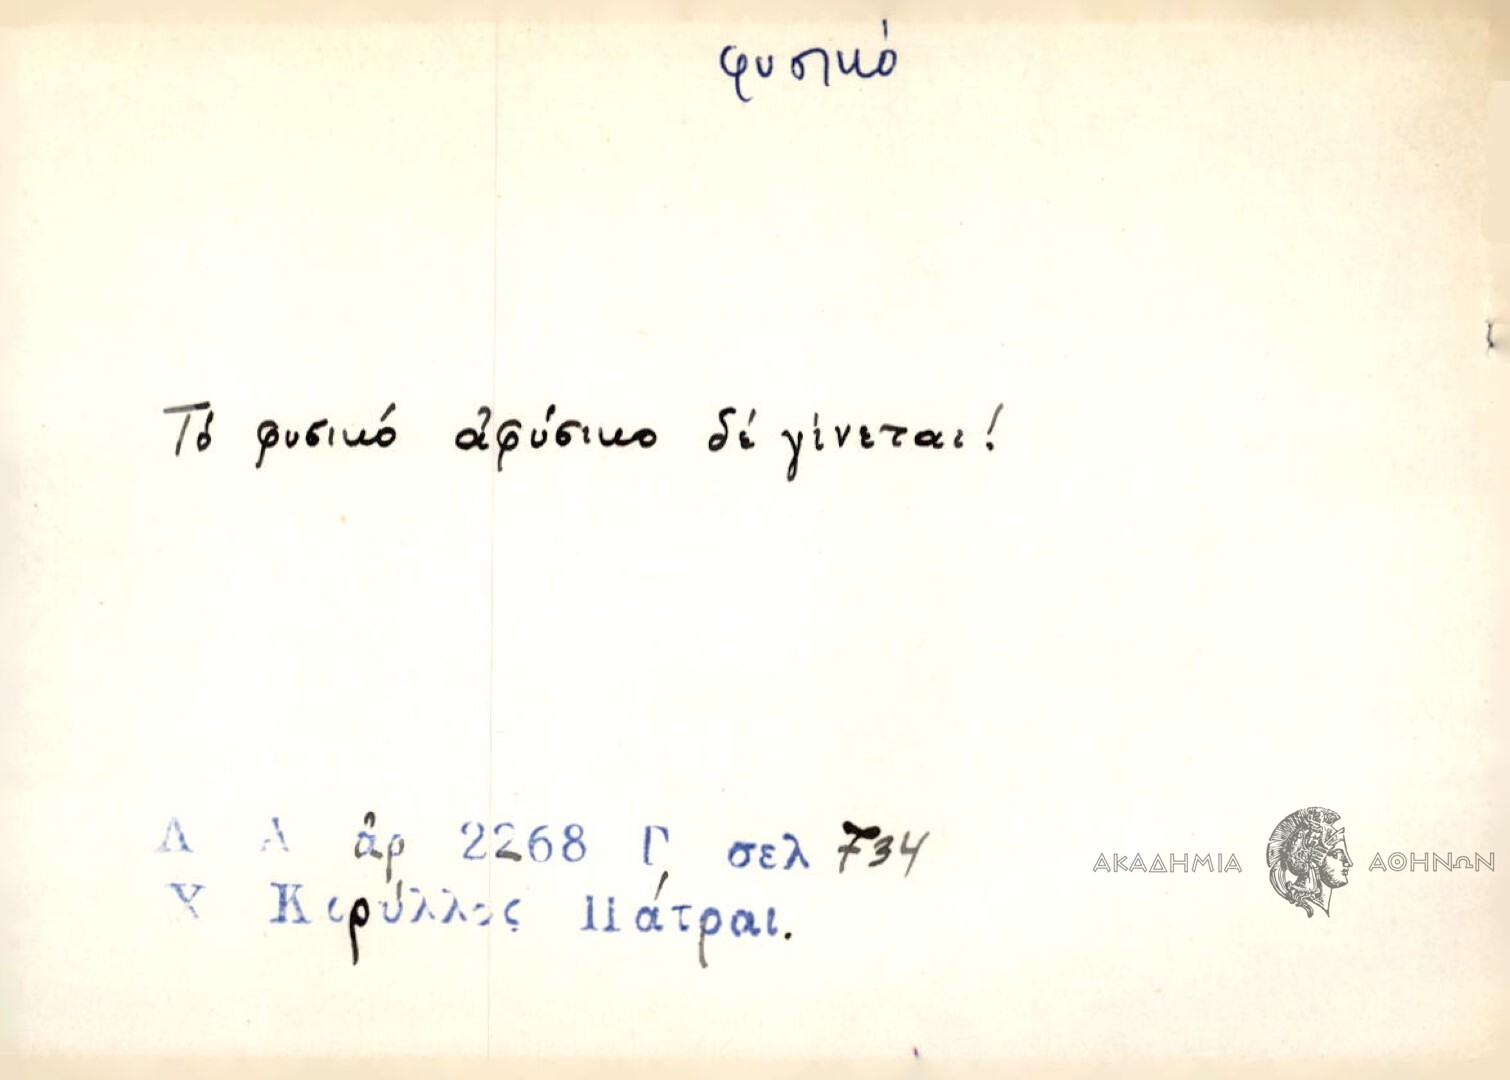 φυσικό
Τό φυσικό ἀφύσικο δέ γίνεται!
Λ Α ἀρ 2268 Γ σελ 734
Χ Κορύλλος Πάτραι.
ΑΚΑΔΗΜΙΑ ΑΘΗΝΩΝ